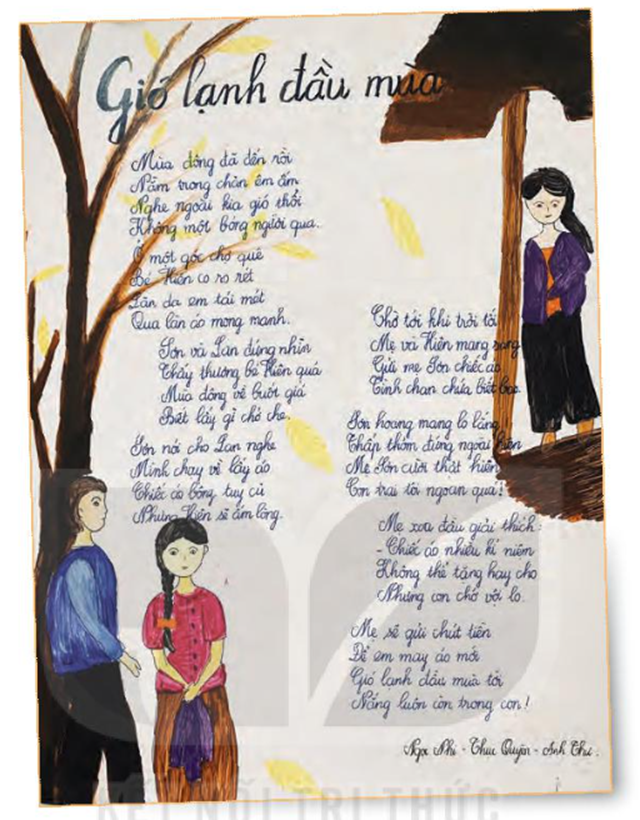 Gió lạnh đầu mùa
Mùa đông đã đến rồi
Nằm trong chăn êm ấm
Nghe ngoài kia gió thổi
Không một bóng người qua.
Ở một góc chợ quê
Bé Hiên co ro rét
Làn da em tái mét
Qua làn áo mong manh.
Sơn và Lan đứng nhìn
Thấy thương bé Hiên quá
Mùa đông về buốt giá
Biết lấy gì chở che.
Sơn nói cho Lan nghe
Mình chạy về lấy áo
Chiếc áo bông tuy cũ
Nhưng Hiên sẽ ấm lòng.
Chờ tới khi trời tối
Mẹ và Hiên mang sang
Gửi mẹ Sơn chiếc áo
Tình chan chứa biết bao.
Sơn hoang mang lo lắng
Thấp thỏm đứng ngoài hiên
Mẹ Sơn cười thật hiền
Con trai tôi ngoan quá!
Mẹ xoa đầu giải thích:
- Chiếc áo nhiều kỉ niệm
Không thể tặng hay cho
Nhưng con chớ vội lo.
Mẹ sẽ gửi chút tiền
Để em may áo mới
Gió lạnh đầu mùa tới
Nắng luôn còn trong con!
Ngọc Nhi - Thuc Quyên - Anh Thư.
KẾT NỐI TRI THỨC